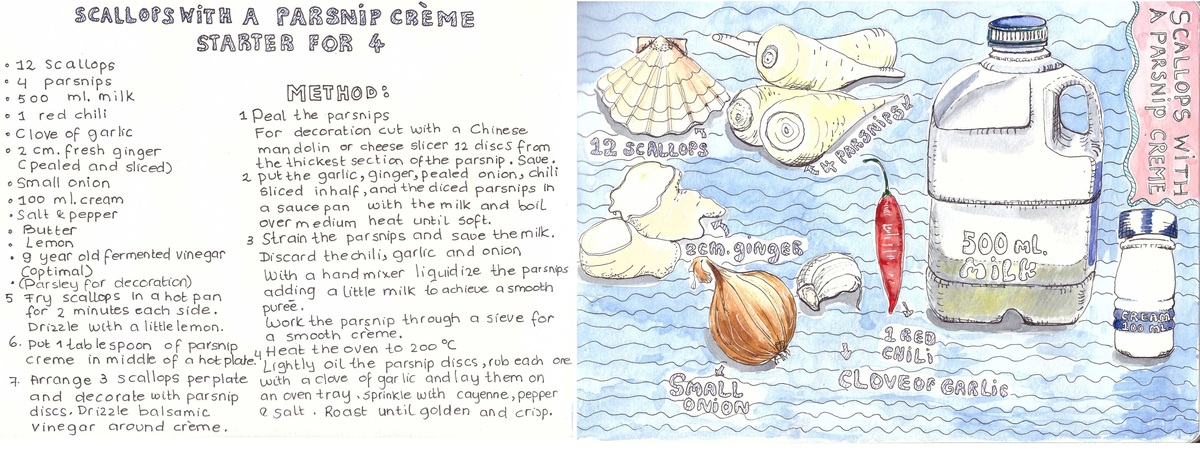 SCALLOPS WITH A PARSNIP CRÈME
STARTER FOR 4
• 12 Scallops
• 4 parsnips
• 500 ml. milk
• 1 red chili
• Clove of garlic
• 2 cm. fresh ginger
(pealed and sliced)
• Small onion
• 100 ml. cream
• Salt & pepper
• Butter
• Lemon
• 9 year old fermented vinegar
(optimal)
• (Parsley for decoration)
METHOD:
1 Peal the parsnips
For decoration cut with a Chinese
mandolin or cheese slicer 12 discs from
the thickest section of the parsnip. Save.
2 put the garlic, ginger, pealed onion, chili
sliced in half, and the diced parsnips in
a sauce pan with the milk and boil
over medium heat until soft.
3 Strain the parsnips and save the milk.
Discard the chili, garlic and onion
With a hand mixer liquidize the parsnips
adding a little milk to achieve a smooth
pureē.
Work the parsnip through a sieve for
a smooth crème.
4 Heat the oven to 200 °C
Lightly oil the parsnip discs, rob each one
with a clove of garlic and lay them on
an oven tray. Sprinkle with cayenne, pepper
& salt. Roast until golden and crisp.
5 Fry scallops in a hot pan
for 2 minutes each side.
Drizzle with a little lemon.
6. put 1 tablespoon of parsnip
creme in middle of a hot plate.
7. Arrange 3 scallops per plate
and decorate with parsnip
discs. Drizzle balsamic
vinegar around crème.
SCALLOPS WITH
A PARSNIP CREME
12 SCALLOPS
4 PARSNIPS
2cm. GINGER
500 ML.
MILK
CREAM
100 ML
1 RED
CHILI
CLOVE OF GARLIC
SMALL
ONION